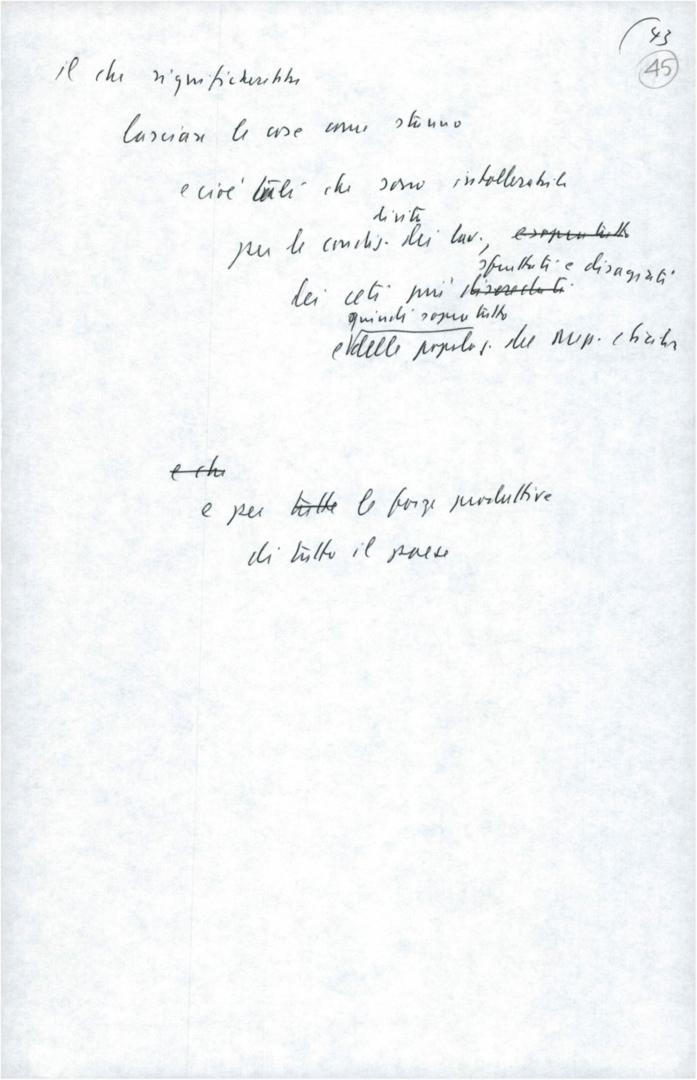 43
45
il che significherebbe
lasciare le cose come stanno
e cioè tali che sono intollerabili
di vita
per le condiz. dei lav., e soprattutto
sfruttati e disagiati
dei ceti più diseredati
quindi soprattutto
e delle popolaz. del
e che
e per tutte le forze produttive
di tutto il paese